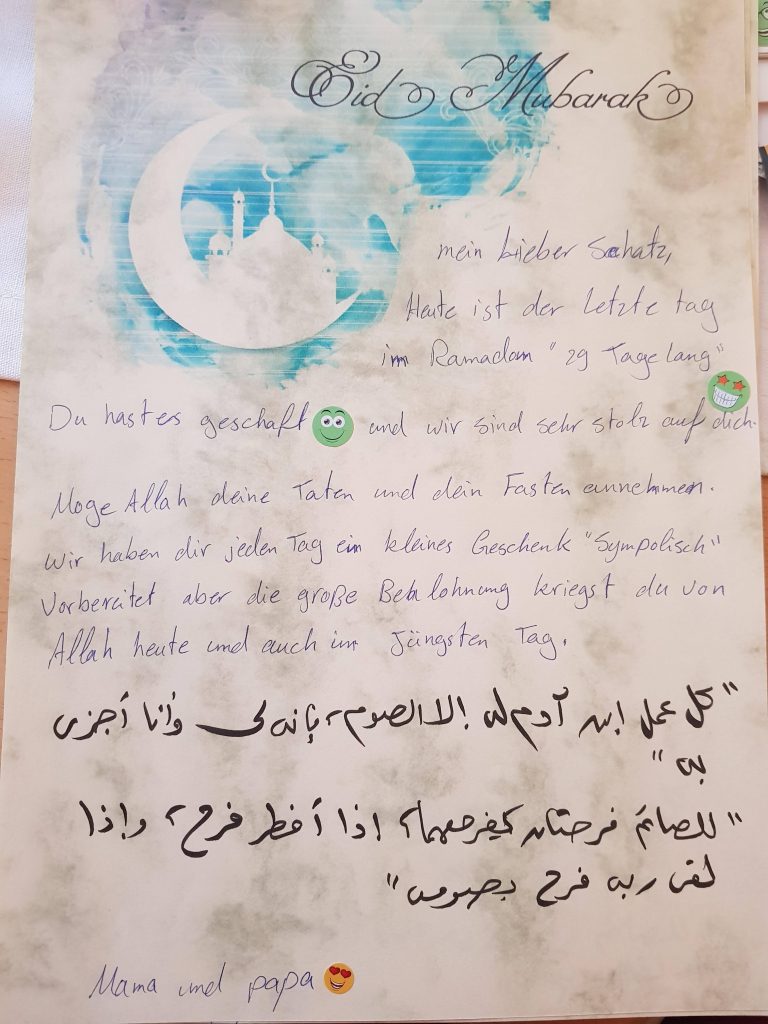 Eid Mubarak
mein lieber Schatz,
Heute ist der letzte tag
im Ramadan "29 Tage lang"
Du hast es geschaft und wir sind sehr stolz auf dich.
Moge Allah deine Taten und dein Fasten annehmen.
Wir haben dir jeden Tag ein kleines Geschenk "Sympolisch"
Vorbereitet aber die große Belohnung kriegst du von
Allah heute und auch im Jüngsten Tag.
"كل عمل ابن آدم له إلا الصوم، فإنه لي وأنا أجزي
به"
"للصائم فرحتان يفرحهما، إذا أفطر فرح، وإذا
لقى ربه فرح بصومه"
Mama und papa